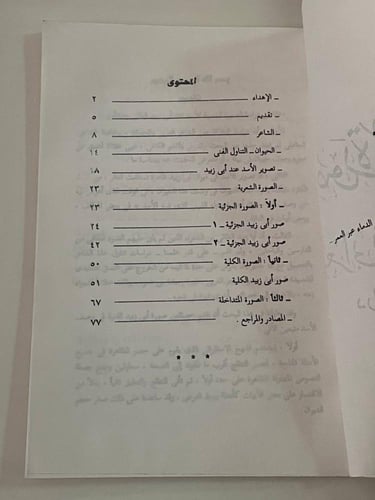 المحتوى
ـ الإهداء ٢
ـ تقديم ٥
ـ الشاعر ٨
ـ الحيوان ـ التناول الفنى ١٤
ـ تصوير الأسد عند أبى زبيد ١٨
ـ الصورة الشعرية ٢٣
ـ أولاً : الصورة الجزئية ٢٣
صور أبى زبيد الجزئية ـ ١ ٢٤
صور أبى زبيد الجزئية ـ ٢ ٤٢
ـ ثانياً : الصورة الكلية ٥٠
صور أبى زبيد الكلية ٥١
ـ ثالثاً : الصورة المتداخلة ٦٧
ـ المصادر والمراجع . ٧٧
* * *